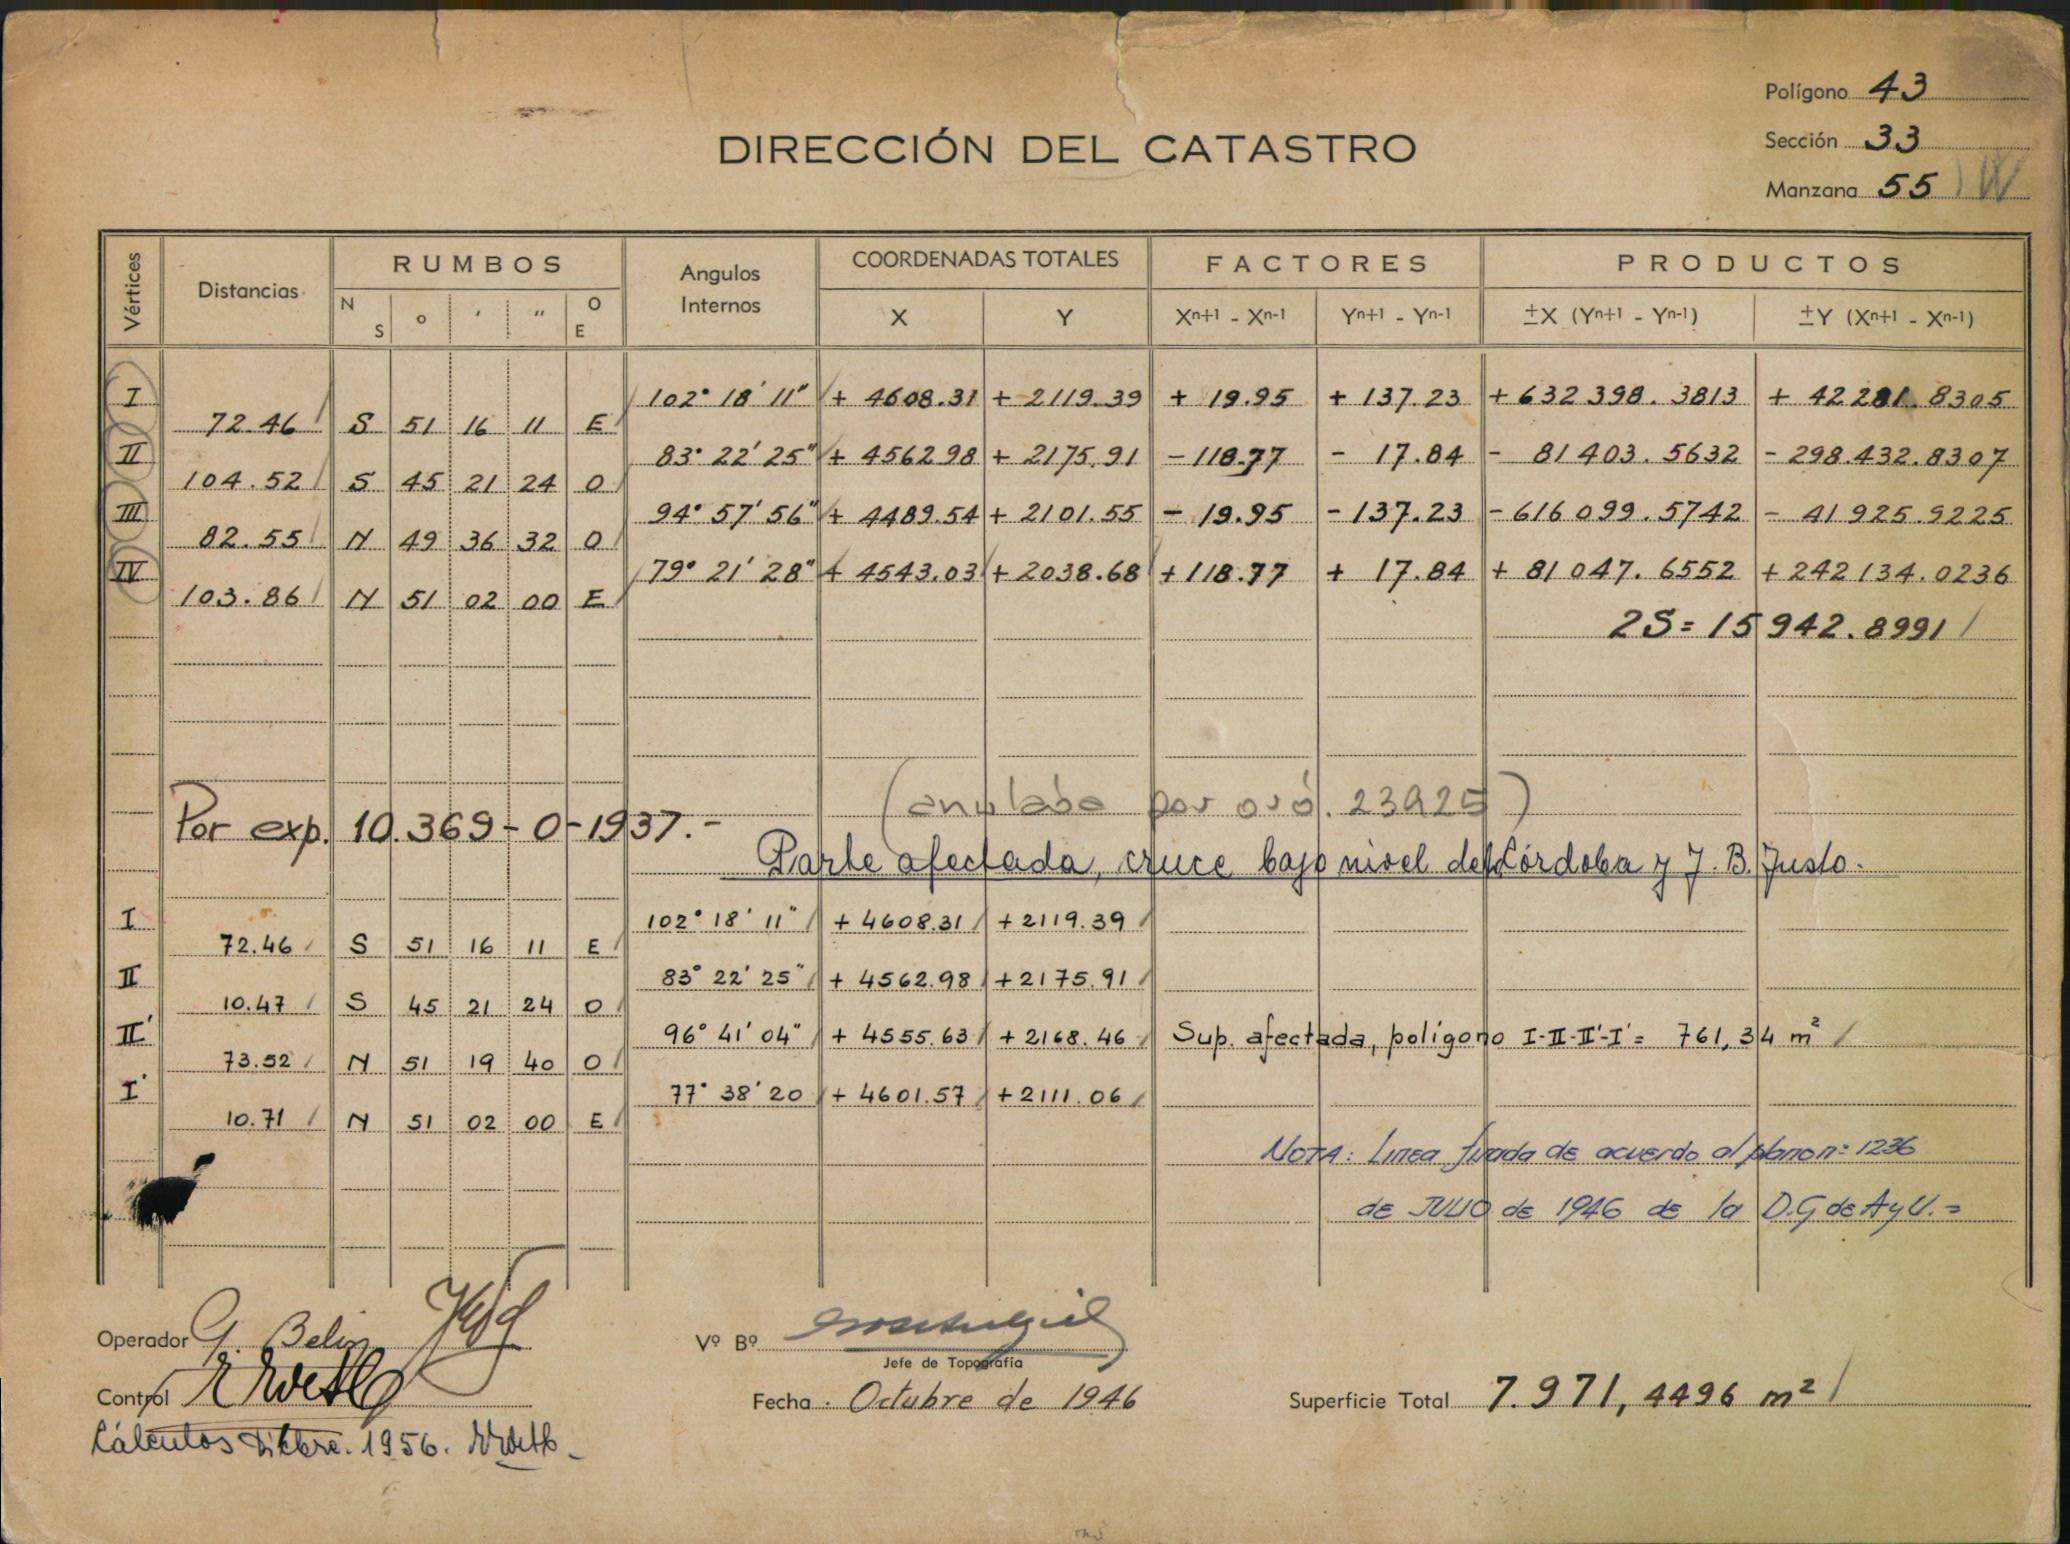 Polígono 43
DIRECCIÓN DEL CATASTRO
Sección 33
Manzana 55
Vértices Distancias RUMBOS Angulos Internos COORDENADAS TOTALES FACTORES PRODUCTOS
N S o ' " O E X Y Xn+1 - Xn-1 Yn+1 - Yn-1 ±X (Yn+1 - Yn-1) ±Y (Xn+1 - Xn-1)
I 102° 18' 11" + 4608.31 + 2119.39 + 19.95 + 137.23 + 632 398. 3813 + 42281. 8305
72.46 S 51 16 11 E
II 83° 22' 25" + 4562.98 + 2175.91 - 118.77 - 17.84 - 81 403. 5632 - 298.432.8307
104.52 S 45 21 24 O
III 94° 57' 56" + 4489.54 + 2101.55 - 19.95 - 137.23 - 616 099. 5742 - 41 925.9225
82.55 N 49 36 32 O
IV 79° 21' 28" + 4543.03 + 2038.68 + 118.77 + 17.84 + 81 047. 6552 + 242 134.0236
103.86 N 51 02 00 E
2S = 15 942.8991
Por exp. 10.369-O-1937.-
Parte afectada, cruce bajo nivel de Córdoba y J. B. Justo.
I 102° 18' 11" + 4608.31 + 2119.39
72.46 S 51 16 11 E
II 83° 22' 25" + 4562.98 + 2175.91
10.47 S 45 21 24 O
II' 96° 41' 04" + 4555.63 + 2168.46 Sup. afectada, polígono I-II-II'-I' = 761,34 m²
73.52 N 51 19 40 O
I' 77° 38' 20 + 4601.57 + 2111.06
10.71 N 51 02 00 E
NOTA: Linea fijada de acuerdo al plano n= 1236
de JULIO de 1946 de la D.G de A y U.=
Operador G. Belin
Vº Bº
Jefe de Topografía
Control
Fecha. Octubre de 1946
Superficie Total 7.971,4496 m²
Cálculos 1956.